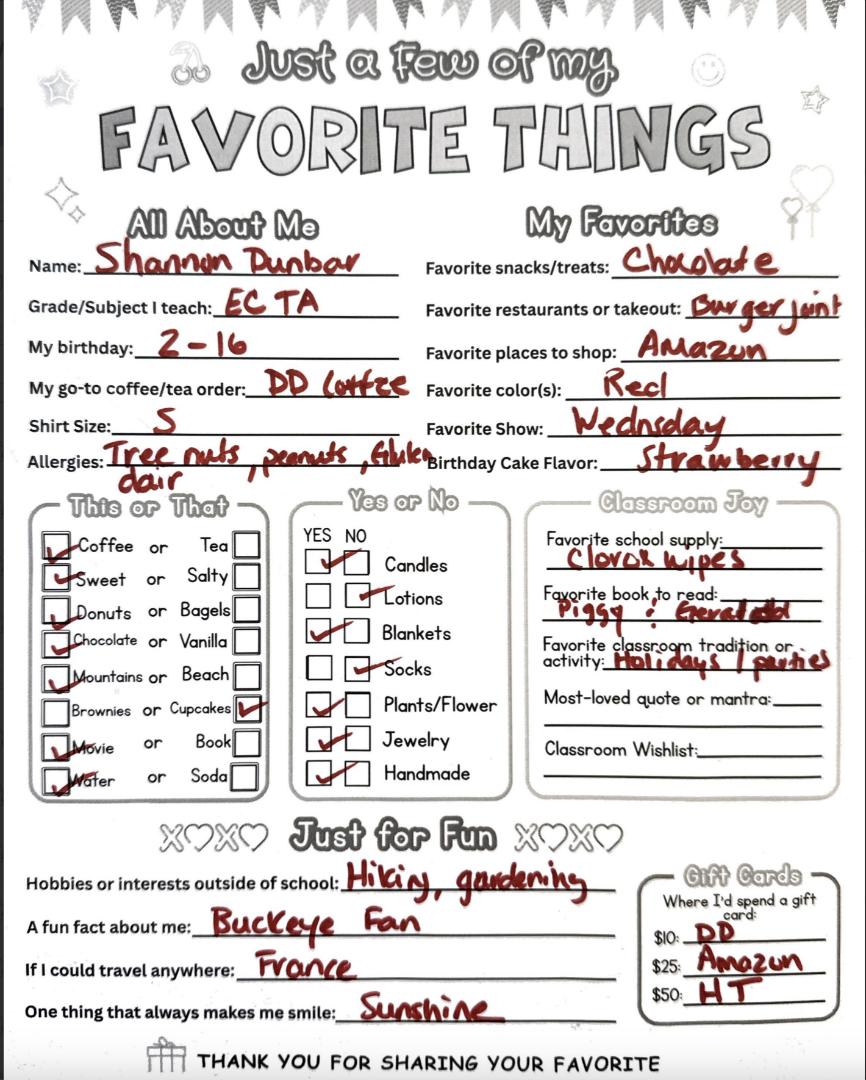 Just a Few of my
FAVORITE THINGS
All About Me
Name: Shannon Dunbar
Grade/Subject I teach: EC TA
My birthday: 2-16
My go-to coffee/tea order: DD Coffee
Shirt Size: S
Allergies: Tree nuts, peanuts, Gluten
dair
My Favorites
Favorite snacks/treats: Chocolate
Favorite restaurants or takeout: Burger joint
Favorite places to shop: Amazon
Favorite color(s): Red
Favorite Show: Wednsday
Birthday Cake Flavor: Strawberry
This or That
Coffee or Tea
Sweet or Salty
Donuts or Bagels
Chocolate or Vanilla
Mountains or Beach
Brownies or Cupcakes
Movie or Book
Water or Soda
Yes or No
YES NO
Candles
Lotions
Blankets
Socks
Plants/Flower
Jewelry
Handmade
Classroom Joy
Favorite school supply:
Clorox wipes
Favorite book to read:
Piggy &
Favorite classroom tradition or
activity: Holidays / parties
Most-loved quote or mantra:
Classroom Wishlist:
XOXO Just for Fun XOXO
Hobbies or interests outside of school: Hiking, gardening
A fun fact about me: Buckeye Fan
If I could travel anywhere: France
One thing that always makes me smile: Sunshine
Gift Cards
Where I'd spend a gift
card:
$10: DD
$25: Amazon
$50: HT
THANK YOU FOR SHARING YOUR FAVORITE